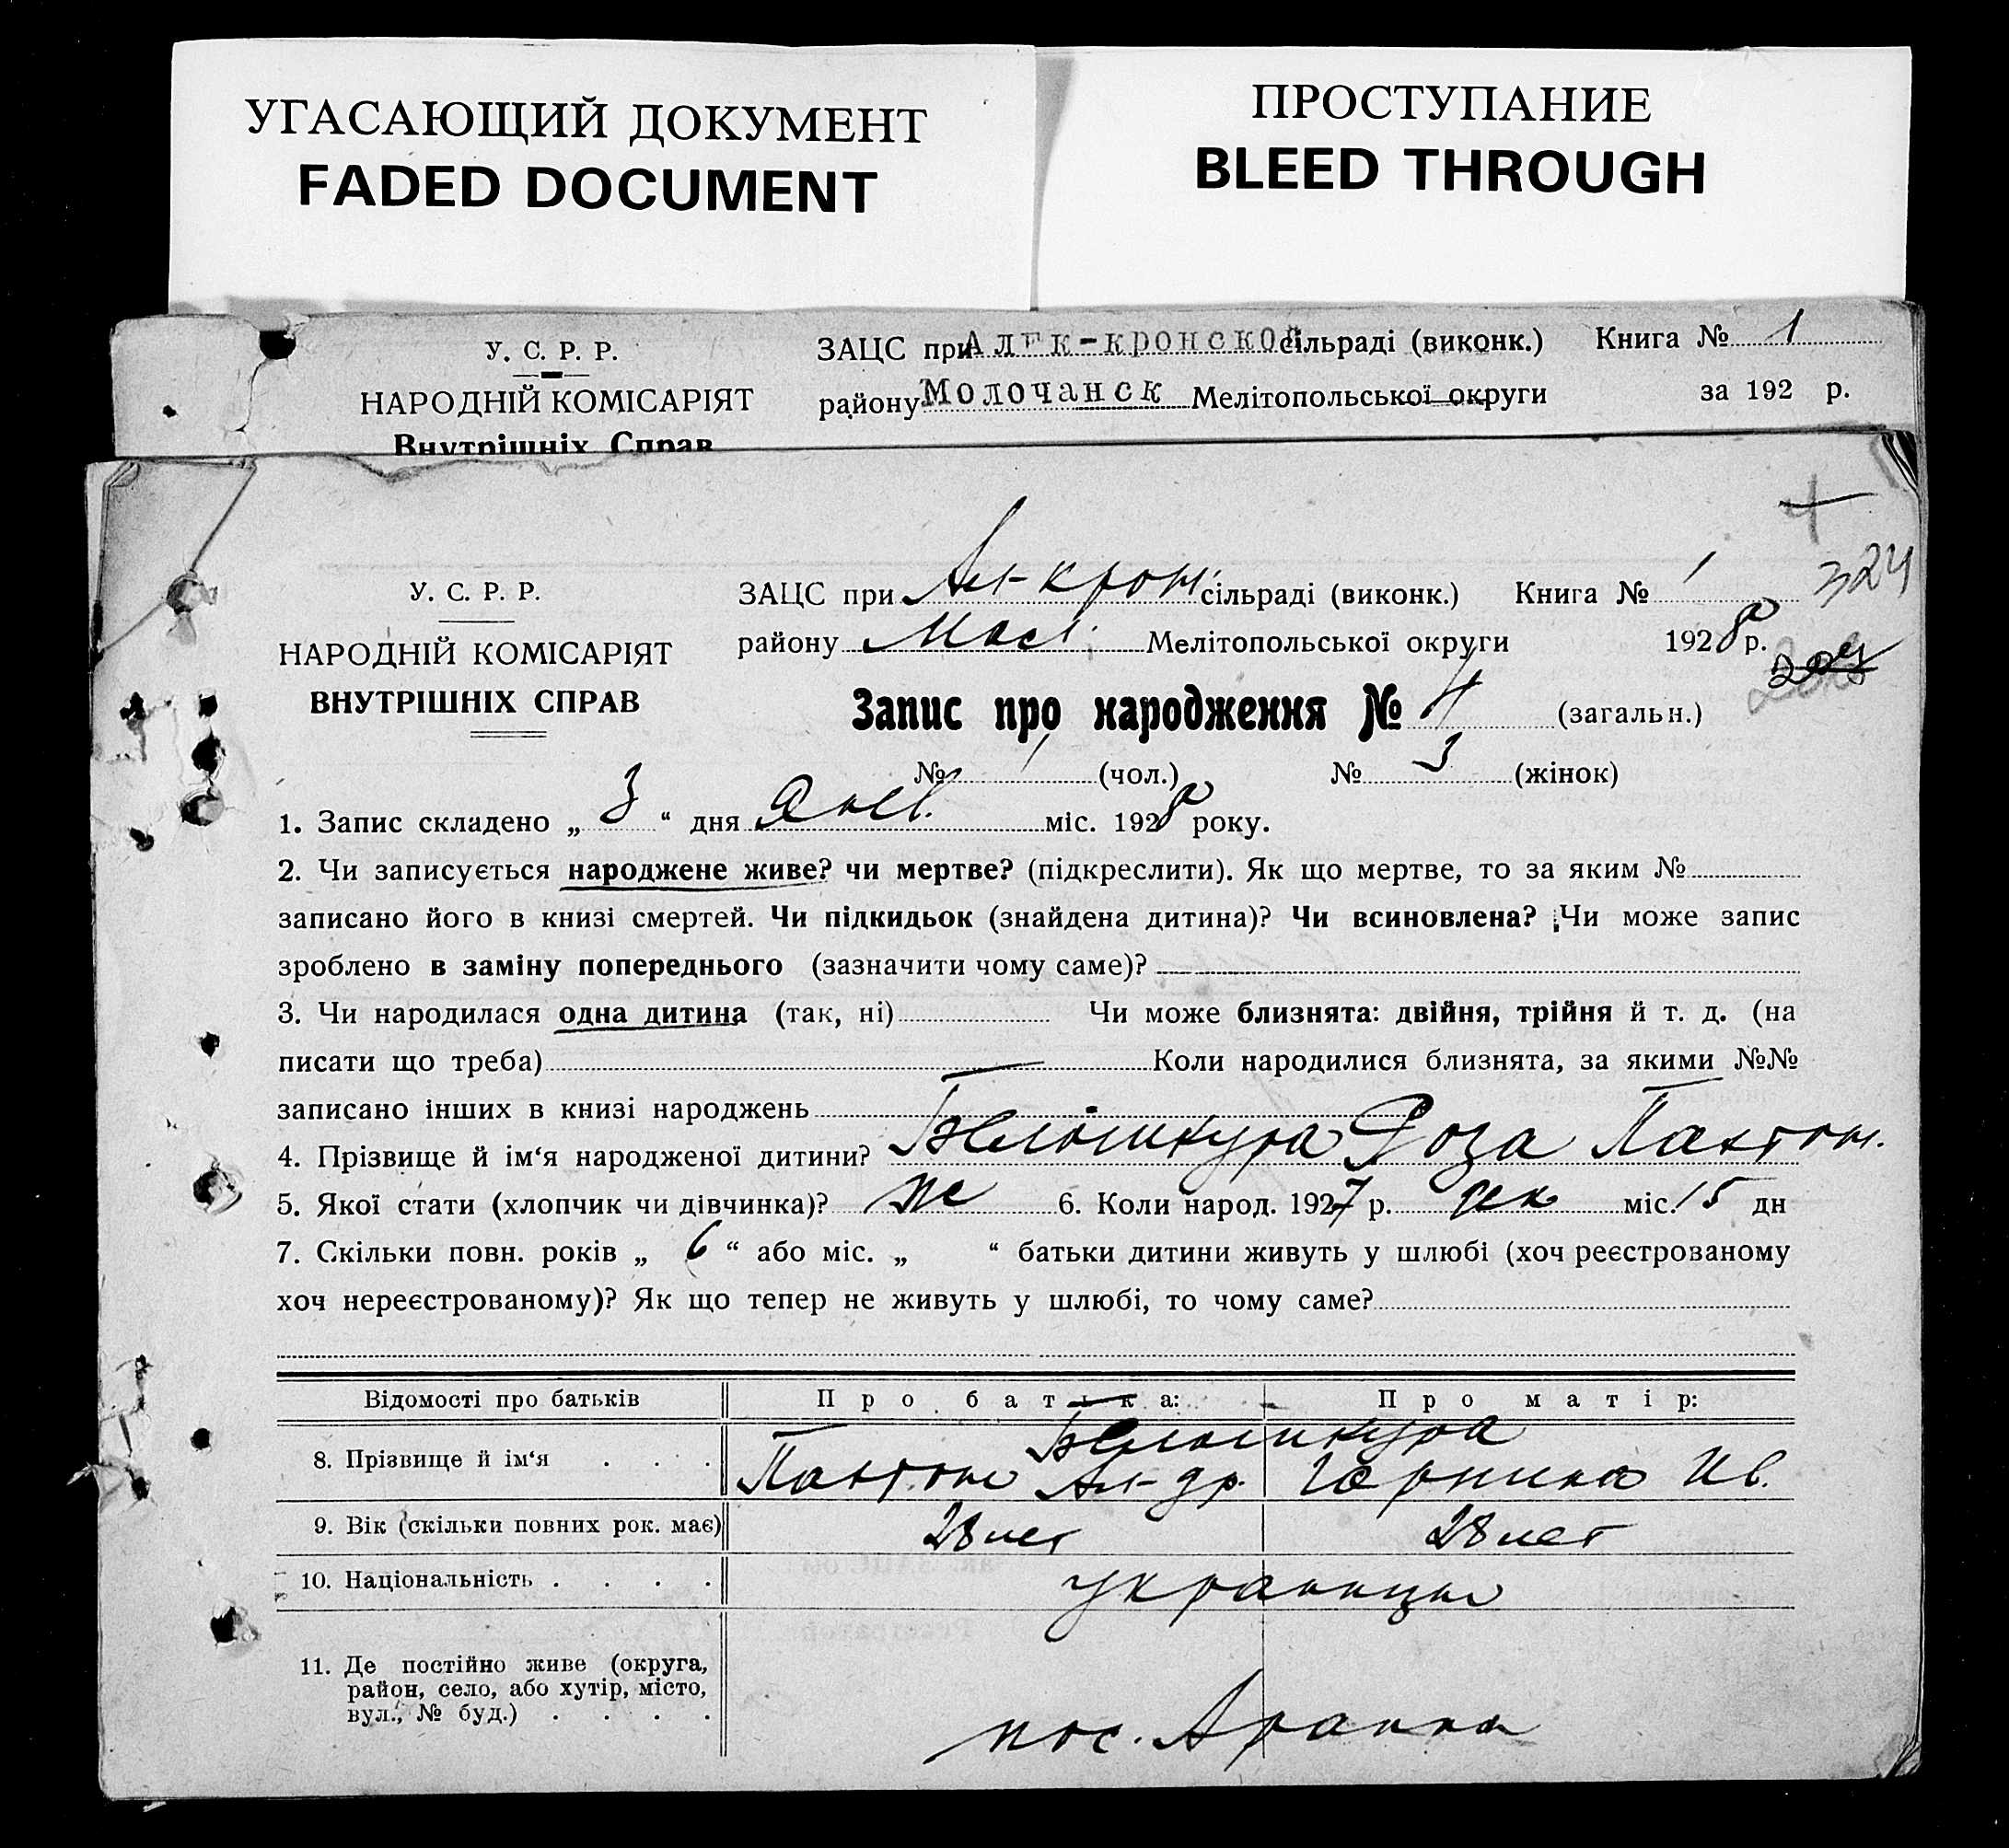 УГАСАЮЩИЙ ДОКУМЕНТ
FADED DOCUMENT
ПРОСТУПАНИЕ
BLEED THROUGH
У. С. Р. Р.
НАРОДНІЙ КОМІСАРІЯТ
Внутрішніх Справ
ЗАЦС при Алек-кронской сільраді (виконк.) Книга № 1
району Молочанск Мелітопольської округи за 192 р.
У. С. Р. Р.
НАРОДНІЙ КОМІСАРІЯТ
ВНУТРІШНІХ СПРАВ
ЗАЦС при Ал-крон. сільраді (виконк.) Книга № 1 324
району Мол. Мелітопольської округи 1928 р.
Запис про народження № 4 (загальн.)
№ 1 (чол.) № 3 (жінок)
1. Запис складено „ 3 “ дня Янв. міс. 1928 року.
2. Чи записується народжене живе? чи мертве? (підкреслити). Як що мертве, то за яким №
записано його в книзі смертей. Чи підкидьок (знайдена дитина)? Чи всиновлена? Чи може запис
зроблено в заміну попереднього (зазначити чому саме)?
3. Чи народилася одна дитина (так, ні) Чи може близнята: двійня, трійня й т. д. (на
писати що треба) Коли народилися близнята, за якими №№
записано інших в книзі народжень
4. Прізвище й ім‘я народженої дитини? Белошкура Роза
5. Якої стати (хлопчик чи дівчинка)? ж 6. Коли народ. 1927 р. дек міс. 15 дн
7. Скільки повн. років „ 6 “ або міс. „ “ батьки дитини живуть у шлюбі (хоч реєстрованому
хоч нереєстрованому)? Як що тепер не живуть у шлюбі, то чому саме?
Відомості про батьків Про батька: Про матір:
Белошкура
8. Прізвище й ім‘я Ал-др. Ив.
9. Вік (скільки повних рок. має) 28 лет 28 лет
10. Національність украинцы
11. Де постійно живе (округа,
район, село, або хутір, місто,
вул., № буд.)
пос.